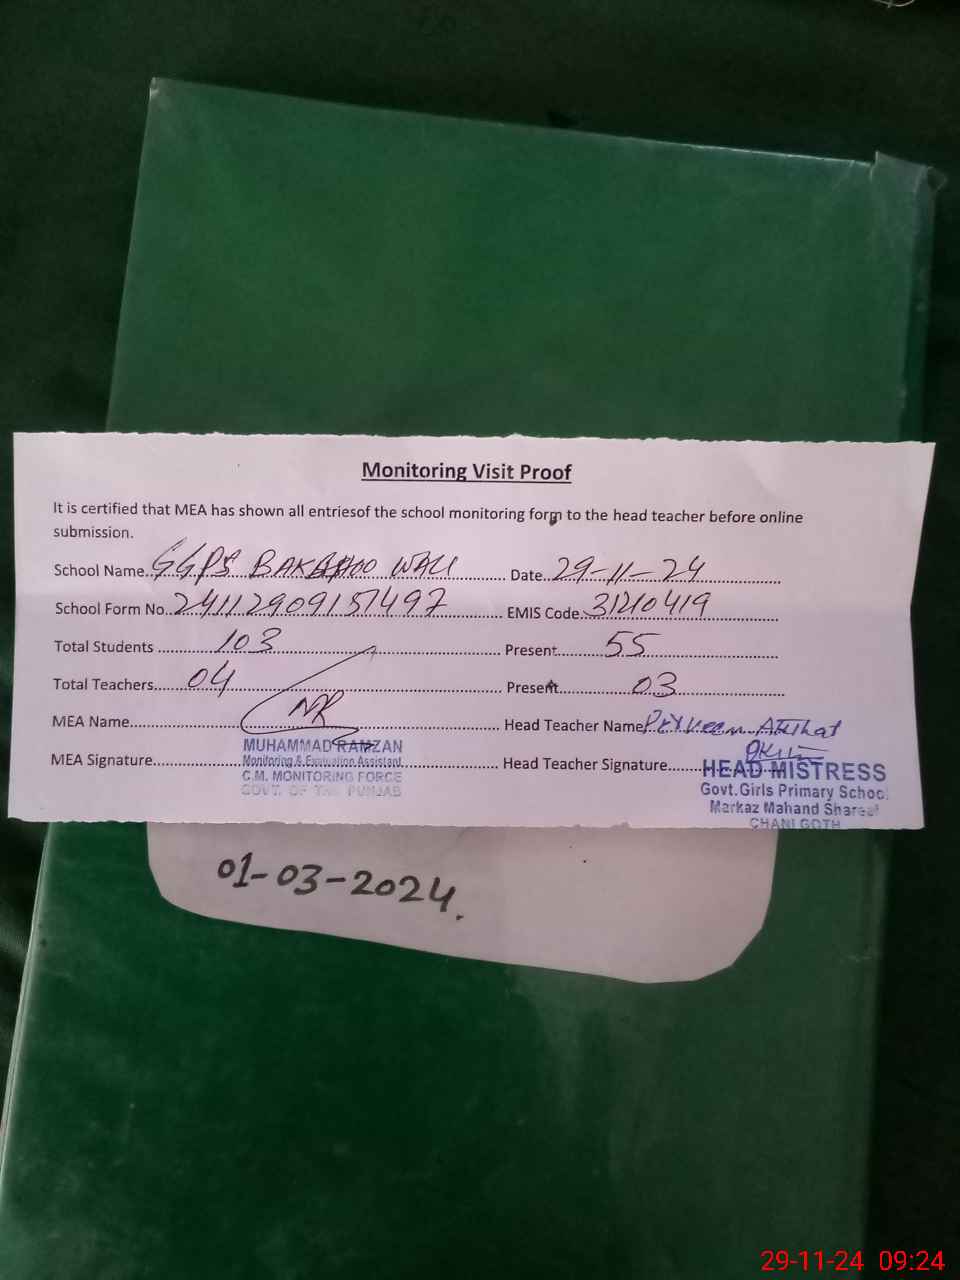 Monitoring Visit Proof
It is certified that MEA has shown all entriesof the school monitoring form to the head teacher before online
submission.
School Name..GGPS WALI.......... Date..29-11-24..........
School Form No..24112909151497.......... EMIS Code..31210419..........
Total Students ..........103.......... Present..........55..........
Total Teachers..........04.......... Present..........03..........
MEA Name.......... Head Teacher Name
MEA Signature.......... Head Teacher Signature..........
MUHAMMAD RAMZAN
Monitoring & Evaluation Assistant
C.M. MONITORING FORCE
GOVT. OF THE PUNJAB
HEAD MISTRESS
Govt.Girls Primary School
Markaz Mahand Shareef
CHANI GOTH
01-03-2024.
29-11-24 09:24